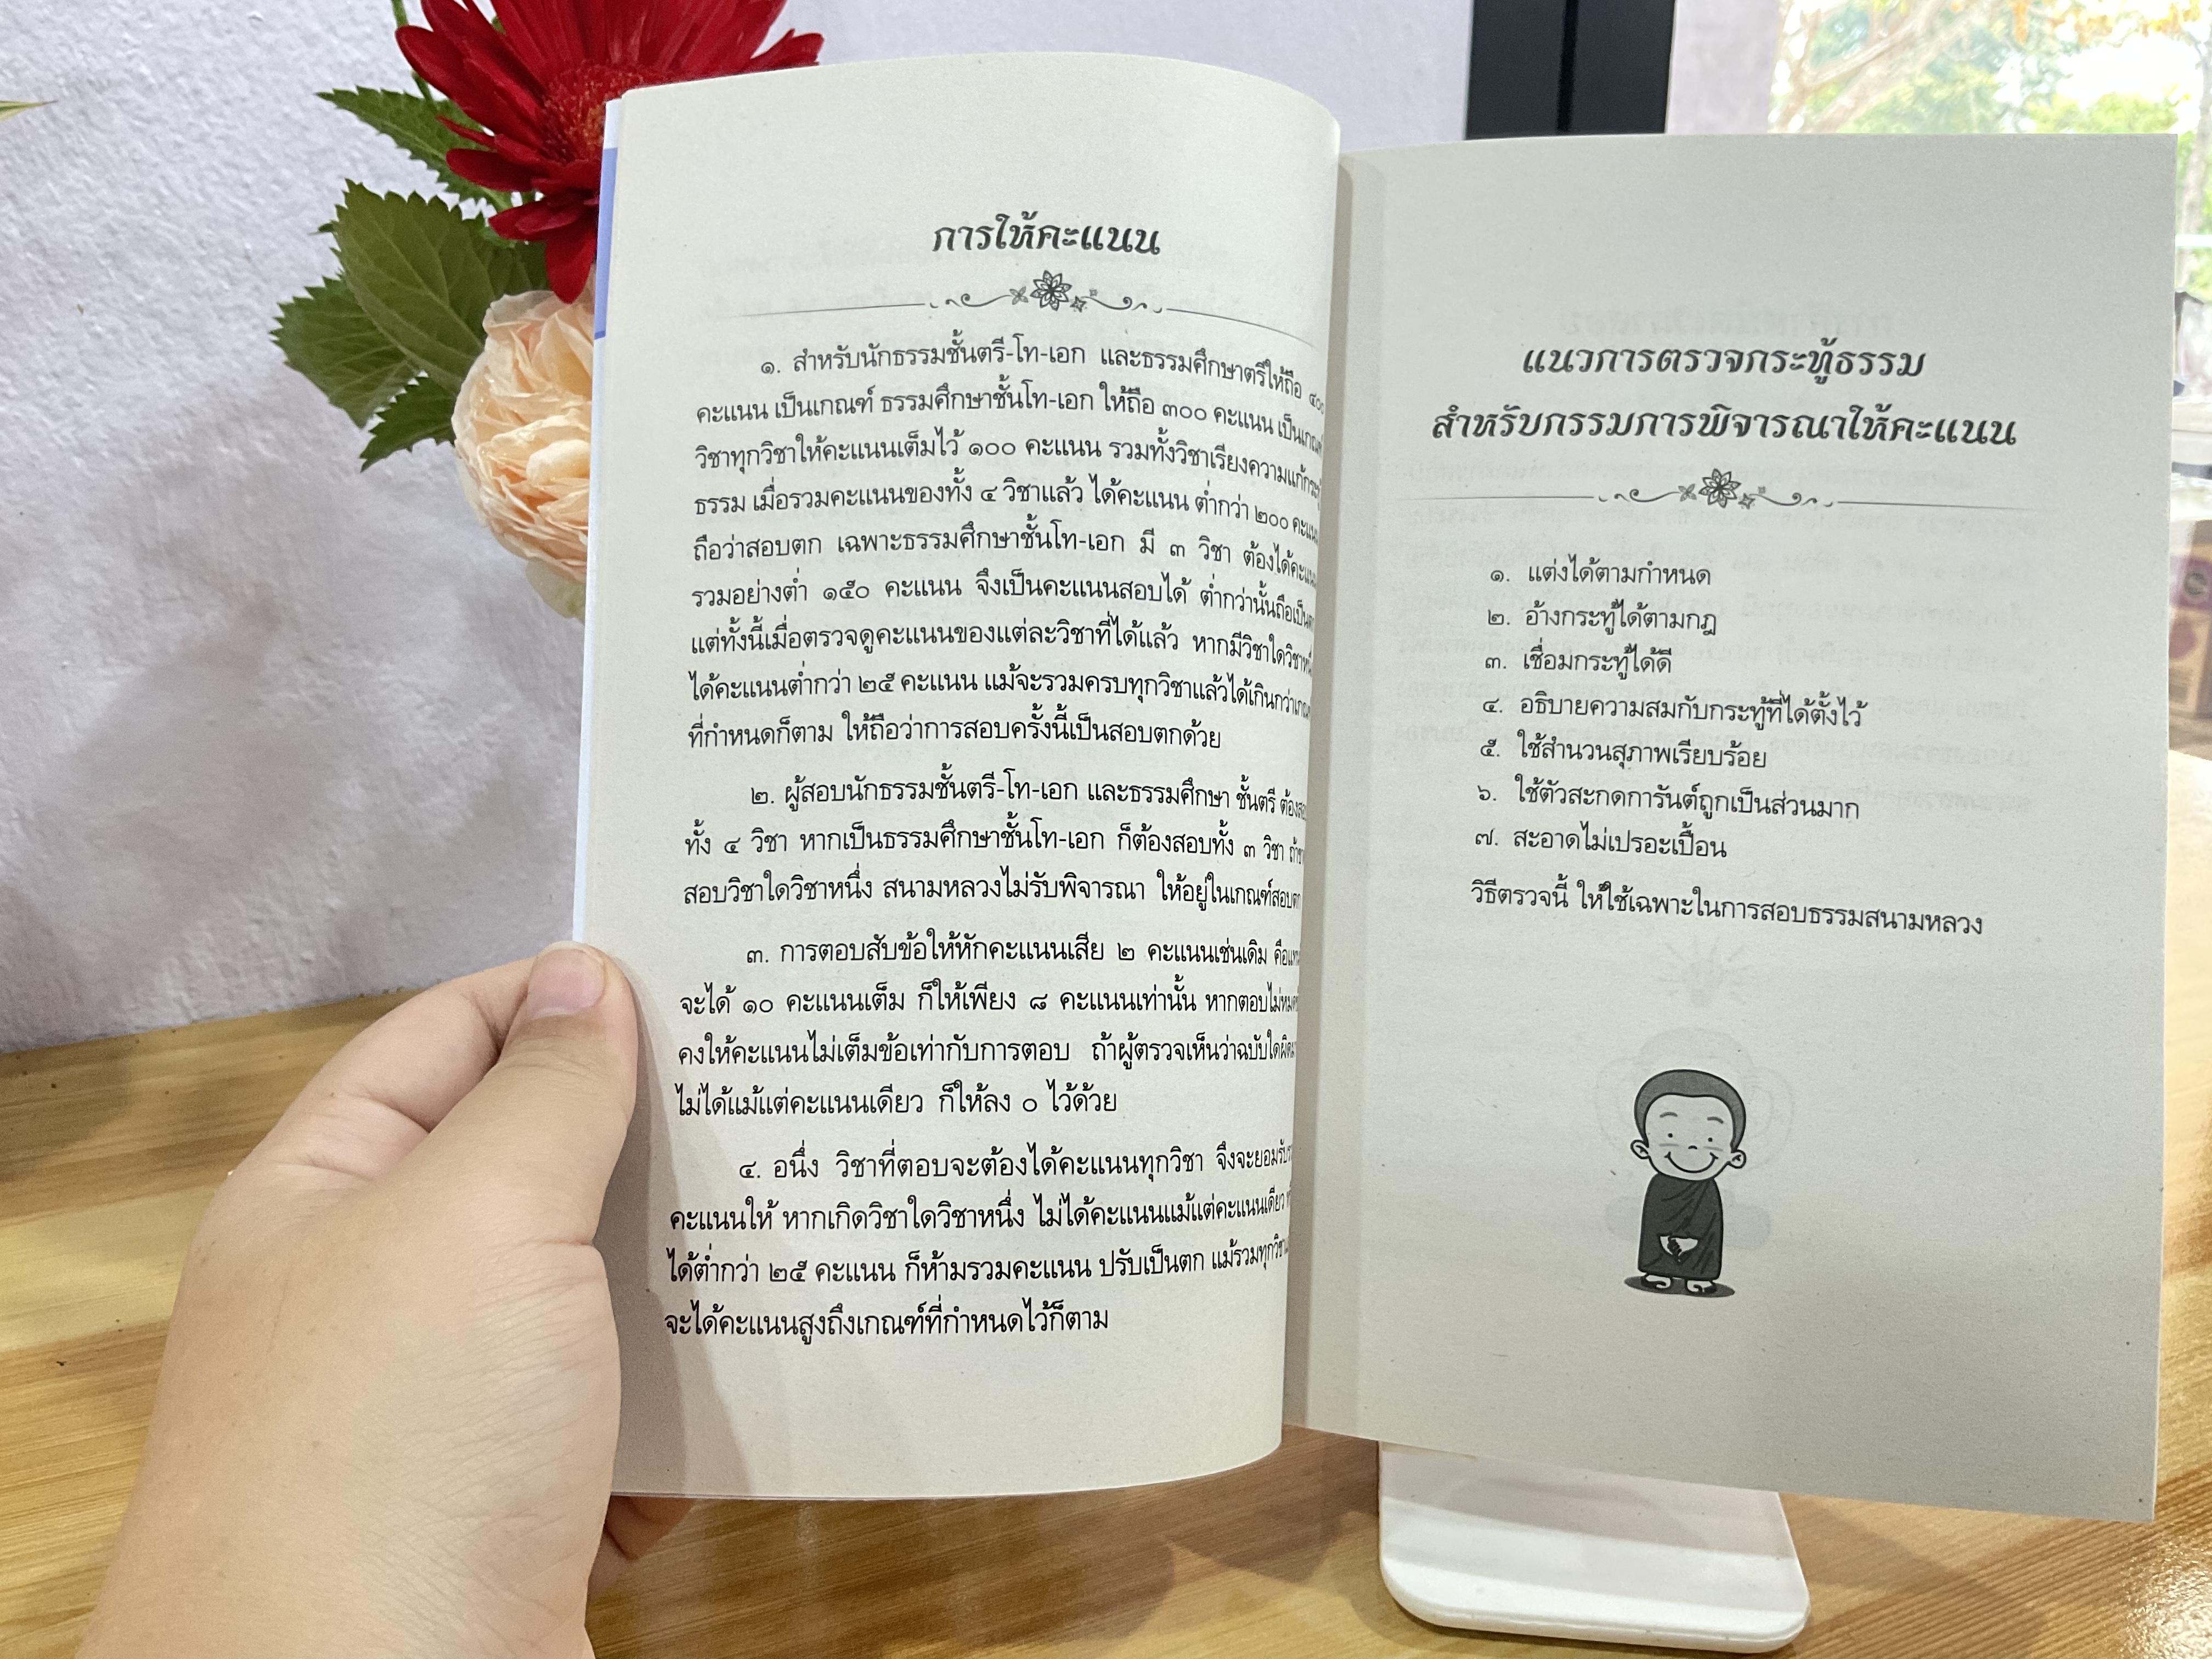 การให้คะแนน
๑. สำหรับนักธรรมชั้นตรี-โท-เอก และธรรมศึกษาตรีให้ถือ ๔๐๐
คะแนน เป็นเกณฑ์ ธรรมศึกษาชั้นโท-เอก ให้ถือ ๓๐๐ คะแนน เป็นเกณฑ์
วิชาทุกวิชาให้คะแนนเต็มไว้ ๑๐๐ คะแนน รวมทั้งวิชาเรียงความแก้กระทู้
ธรรม เมื่อรวมคะแนนของทั้ง ๔ วิชาแล้ว ได้คะแนน ต่ำกว่า ๒๐๐ คะแนน
ถือว่าสอบตก เฉพาะธรรมศึกษาชั้นโท-เอก มี ๓ วิชา ต้องได้คะแนน
รวมอย่างต่ำ ๑๕๐ คะแนน จึงเป็นคะแนนสอบได้ ต่ำกว่านั้นถือเป็นตก
แต่ทั้งนี้เมื่อตรวจดูคะแนนของแต่ละวิชาที่ได้แล้ว หากมีวิชาใดวิชาหนึ่ง
ได้คะแนนต่ำกว่า ๒๕ คะแนน แม้จะรวมครบทุกวิชาแล้วได้เกินกว่าเกณฑ์
ที่กำหนดก็ตาม ให้ถือว่าการสอบครั้งนี้เป็นสอบตกด้วย
๒. ผู้สอบนักธรรมชั้นตรี-โท-เอก และธรรมศึกษา ชั้นตรี ต้องสอบ
ทั้ง ๔ วิชา หากเป็นธรรมศึกษาชั้นโท-เอก ก็ต้องสอบทั้ง ๓ วิชา ถ้าขาด
สอบวิชาใดวิชาหนึ่ง สนามหลวงไม่รับพิจารณา ให้อยู่ในเกณฑ์สอบตก
๓. การตอบสับข้อให้หักคะแนนเสีย ๒ คะแนนเช่นเดิม คือแทน
จะได้ ๑๐ คะแนนเต็ม ก็ให้เพียง ๘ คะแนนเท่านั้น หากตอบไม่หมด
คงให้คะแนนไม่เต็มข้อเท่ากับการตอบ ถ้าผู้ตรวจเห็นว่าฉบับใดผิด
ไม่ได้แม้แต่คะแนนเดียว ก็ให้ลง ๐ ไว้ด้วย
๔. อนึ่ง วิชาที่ตอบจะต้องได้คะแนนทุกวิชา จึงจะยอมรับ
คะแนนให้ หากเกิดวิชาใดวิชาหนึ่ง ไม่ได้คะแนนแม้แต่คะแนนเดียว
ได้ต่ำกว่า ๒๕ คะแนน ก็ห้ามรวมคะแนน ปรับเป็นตก แม้รวมทุกวิชา
จะได้คะแนนสูงถึงเกณฑ์ที่กำหนดไว้ก็ตาม
แนวการตรวจกระทู้ธรรม
สำหรับกรรมการพิจารณาให้คะแนน
๑. แต่งได้ตามกำหนด
๒. อ้างกระทู้ได้ตามกฎ
๓. เชื่อมกระทู้ได้ดี
๔. อธิบายความสมกับกระทู้ที่ได้ตั้งไว้
๕. ใช้สำนวนสุภาพเรียบร้อย
๖. ใช้ตัวสะกดการันต์ถูกเป็นส่วนมาก
๗. สะอาดไม่เปรอะเปื้อน
วิธีตรวจนี้ ให้ใช้เฉพาะในการสอบธรรมสนามหลวง